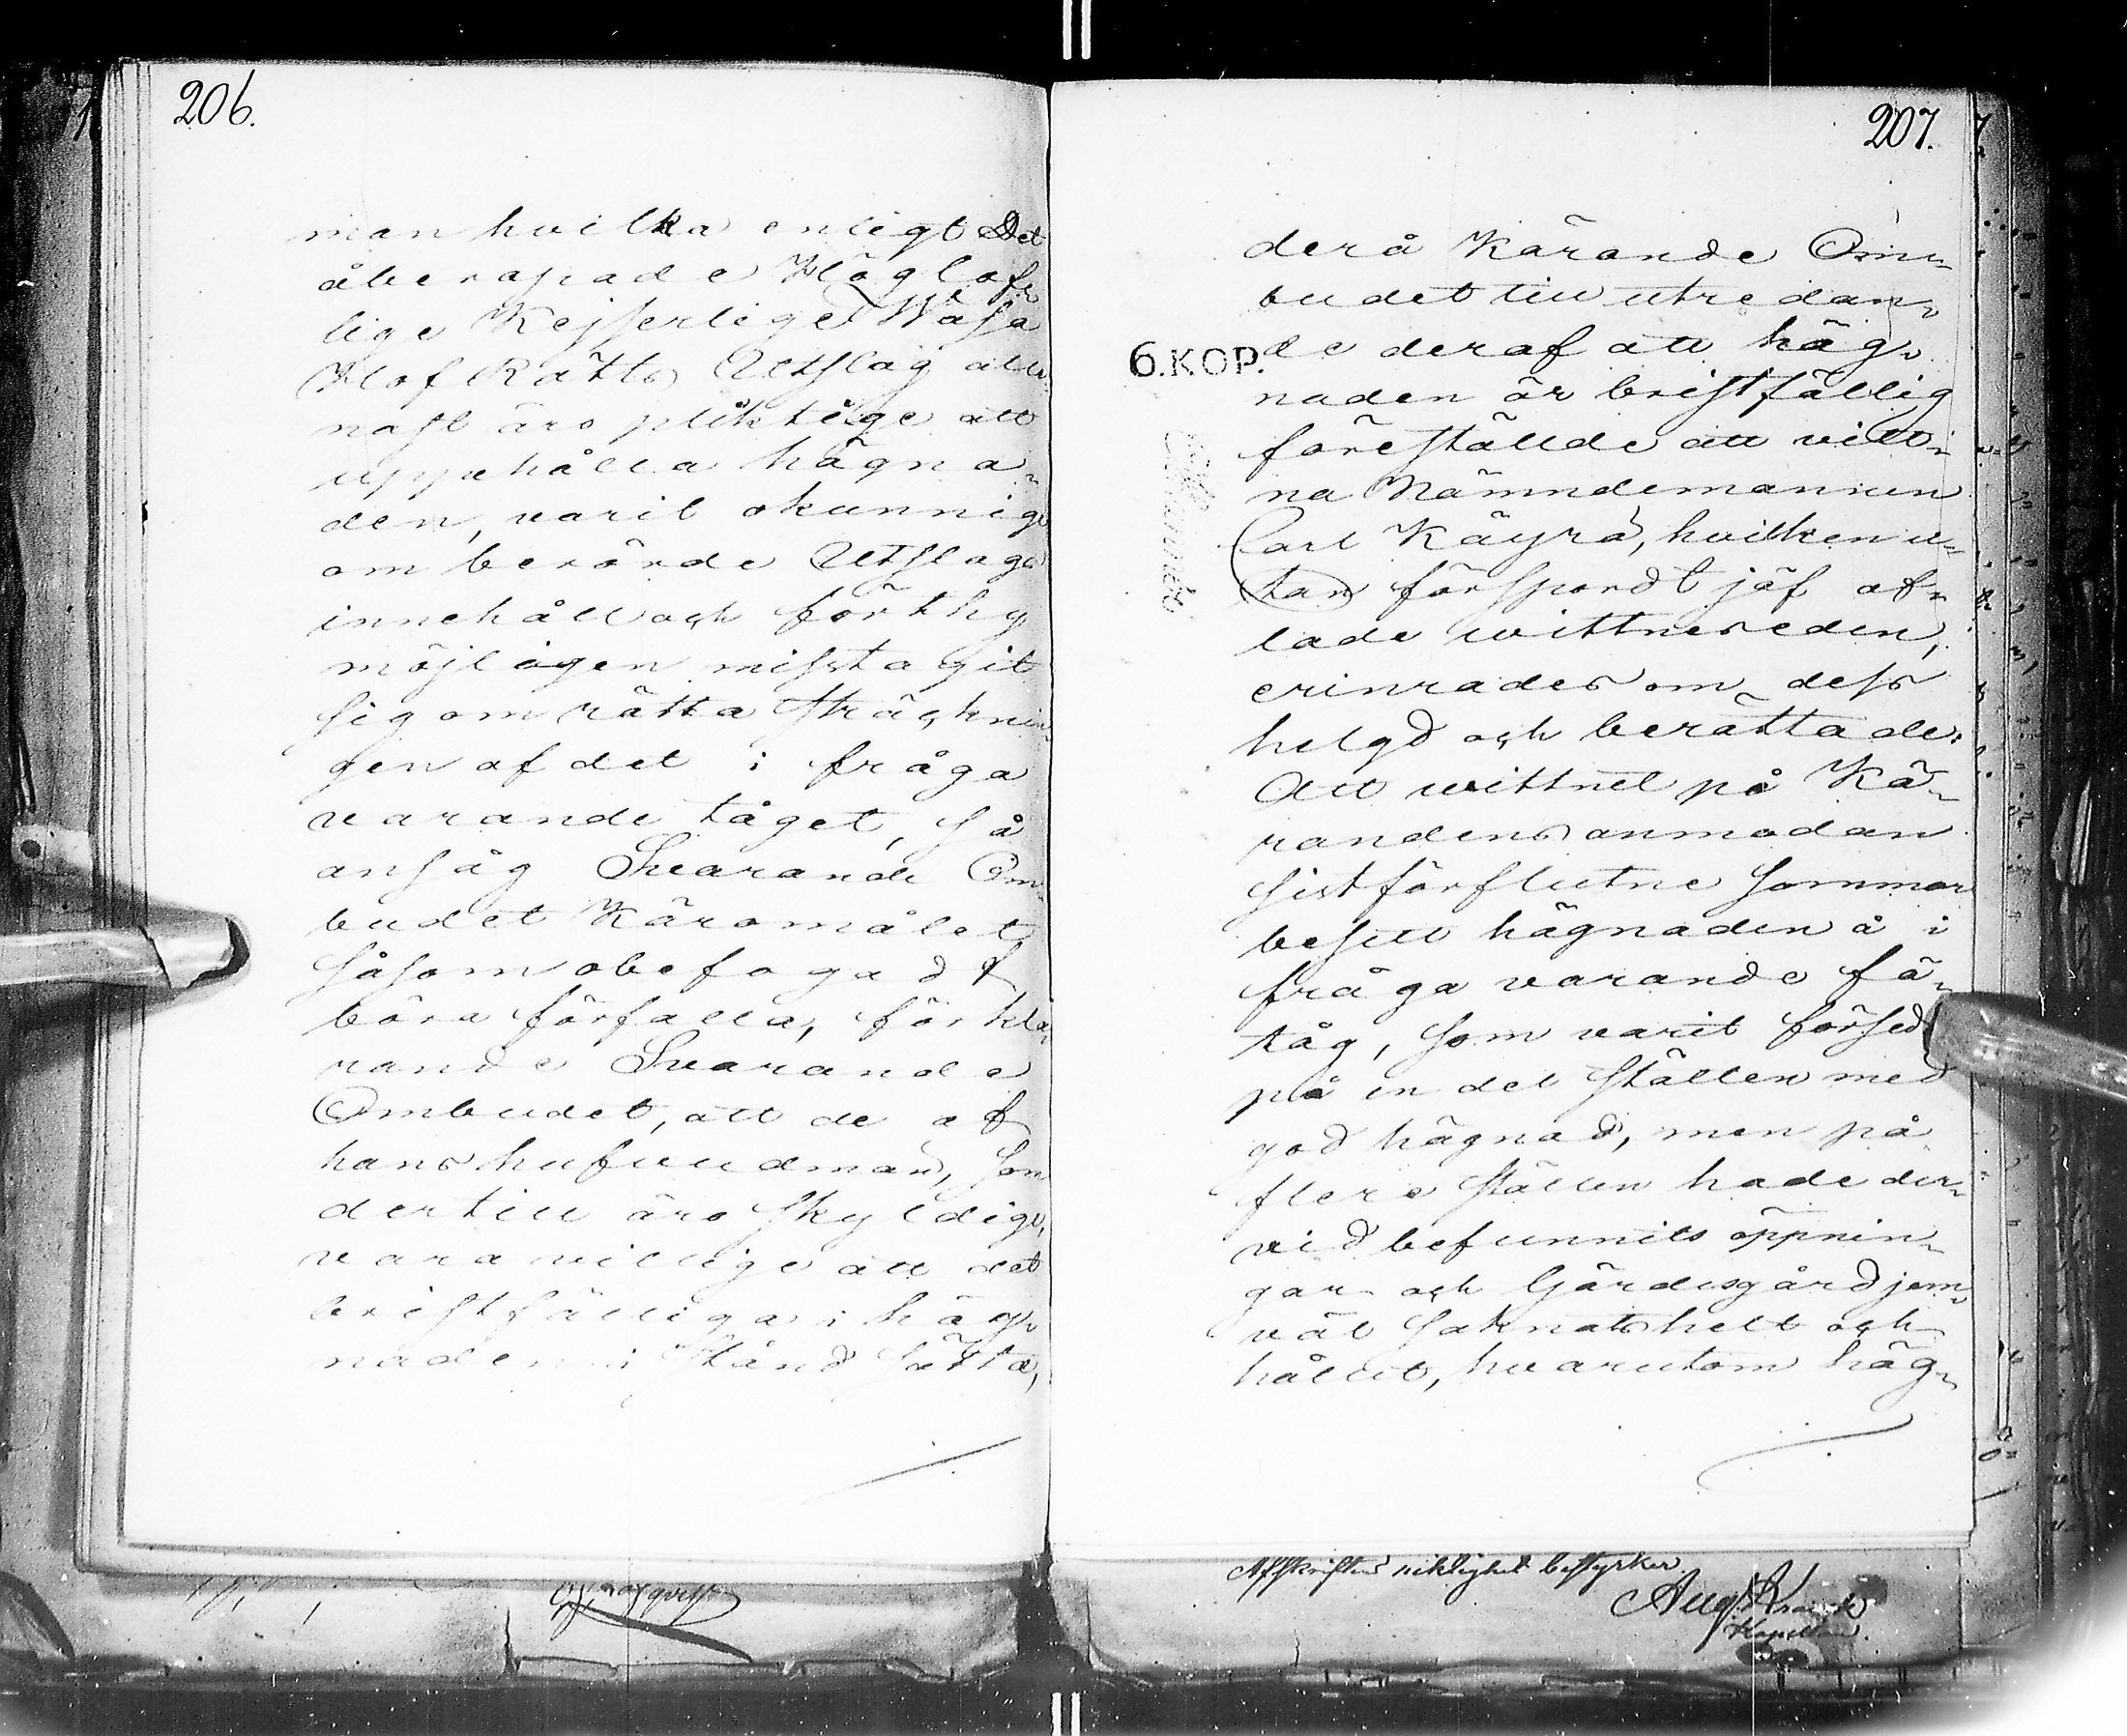 206.
man hvilka enligt Det
åberopade Höglof¬
lige Kejserlige Wasa
Hof Rätts Utslag all¬
nast äro pliktige att
upprehålla hägna¬
den, varit okunnige
om berörde Utslags
innehåll och förthy
möjligen misstagit
sig om rätta sträcknin¬
gen af det i fråga
varande tåget, så
ansåg Svarande Om¬
budet Käromålet
såsom obefogadt
böra förfalla, förkla¬
rande Svarande
Ombudet, att de af
hans hufvudman, som
dertill äro skyldige,
vara villige att det
bristfälliga i häg¬
naden i stånd sätta,
207.
derå Kärande Om¬
budet till utredan¬
de deraf att häg¬
naden är bristfällig
föreställde att vitt¬
na Nämndemannen
Carl Käyrä, hvilken u¬
tan förspordt jäf af¬
lade wittneseden,
erinrades om dess
helgd och berättade:
Att wittnet på Kä¬
randens anmodan
sistförflutne sommar
besett hägnaden å i
fråga varande fä¬
tåg, som varit försedt
på en del ställen med
god hägnad, men på
flere ställen hade der¬
vid befunnits öppnin¬
gar och Gärdesgård jem¬
väl saknats helt och
hållit, hvarutom häg¬
6.KOP.
Afskriftens riktighet bestyrker
Aug. Kranck
Kapellan.